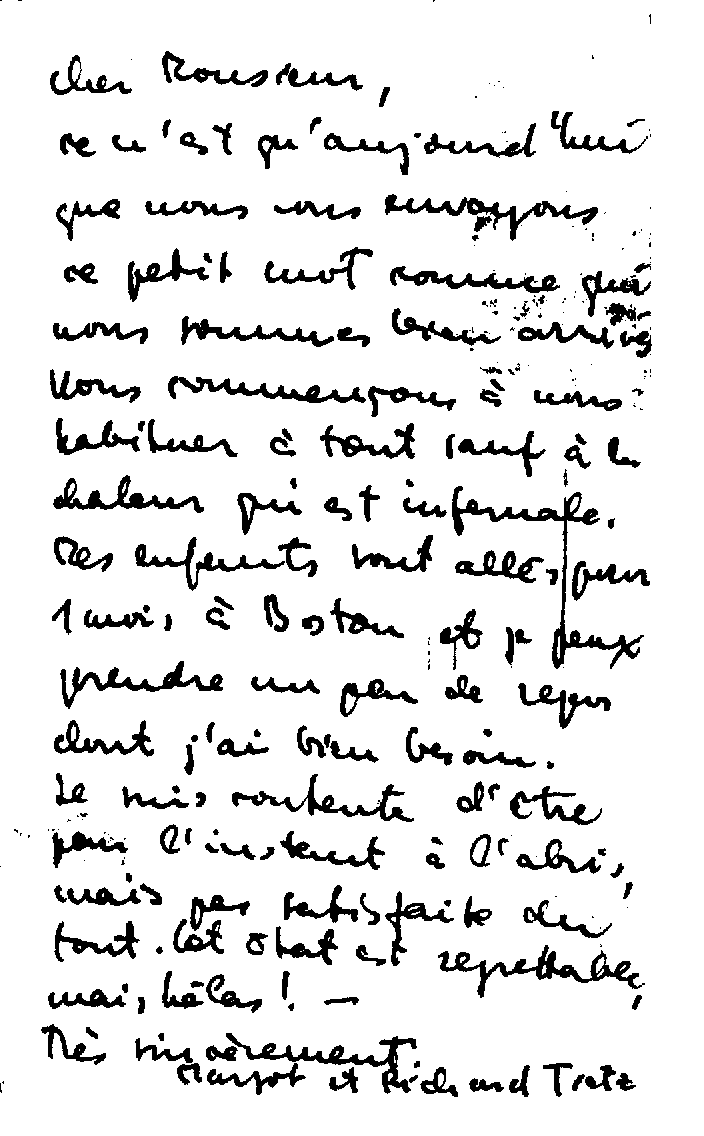 Cher Monsieur,
ce n'est qu'aujourd'hui
que nous vous envoyons
ce petit mot comme quoi
nous sommes bien arrivés
Nous commençons à nous
habituer à tout sauf à la
chaleur qui est infernale.
Mes enfants sont allés pour
1 mois à Boston et je peux
prendre un peu de repos
dont j'ai bien besoin.
Je suis contente d'être
pour l'instant à l'abri,
mais pas satisfaite du
tout. Cet état est regrettable,
mais, hélas! —
Très sincèrement.
Margot et Richard